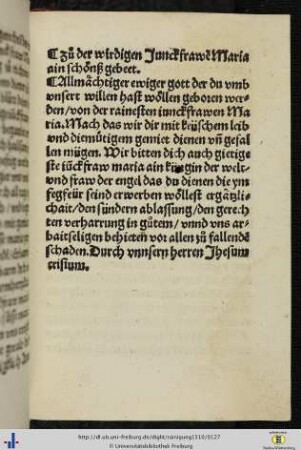 ¶ Zů der wirdigen Junckfrawē Maria
ain schönß gebeet.
¶ Allmächtiger ewiger gott der du vmb
vnsert willen hast wöllen geboren wer-
den/von der rainesten iunckfrawen Ma
ria. Mach das wir dir mit keüschem leib
vnd diemütigem gemiet dienen vñ gesal
len mügen. Wir bitten dich auch gietige
ste iückfraw maria ain künigin der welt-
vnd fraw der engel das du dienen die ym
fegfeür seind erwerben wöllest ergätzli-
chait/den sündern ablassung/den gerech
ten verharrung in gůtem/vnnd vns ar-
baitseligen behieten vor allen zů fallendē
schaden. Durch vnnsern herren Jhesum
cristum.
http://dl.ub.uni-freiburg.de/diglit/ranigung1510/0127
© Universitätsbibliothek Freiburg